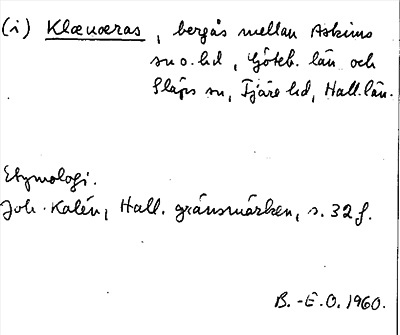 (i) Klæværas, bergås mellan Askims
sn o. hd, Göteb. län och
Släps sn, Fjäre hd, Hall. län.
Etymologi.
Joh. Kalén, Hall. gränsmärken, s. 32 f.
B.-E.O. 1960.